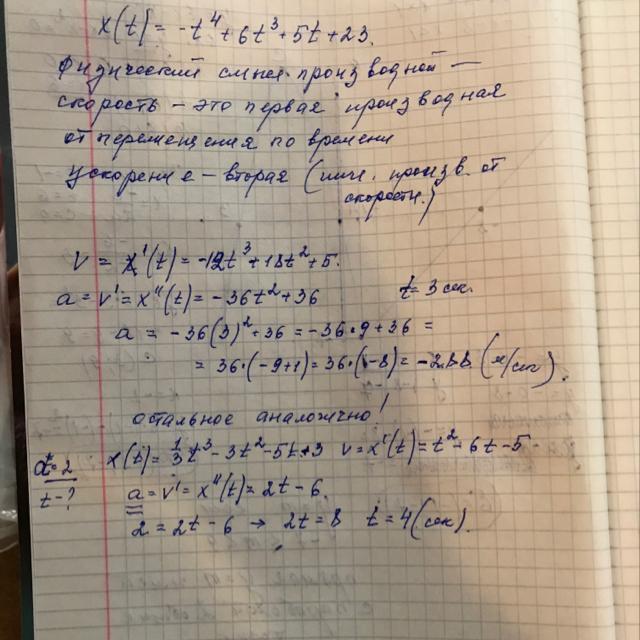 x(t) = -t⁴ + 6t³ + 5t + 23.
Физический смысл производной —
скорость – это первая производная
от перемещения по времени
Ускорение – вторая (или произв. от
скорости.)
V = x'(t) = -12t³ + 18t² + 5.
a = v' = x''(t) = -36t² + 36
t = 3 сек.
a = -36(3)² + 36 = -36·9 + 36 =
= 36·(-9+1) = 36·(-8) = -288 (м/сек²).
остальное аналожично!
a=2
x(t) = 1/3 t³ - 3t² - 5t + 3 v = x'(t) = t² - 6t - 5
t - ?
a = v' = x''(t) = 2t - 6.
2 = 2t - 6 → 2t = 8 t = 4 (сек).